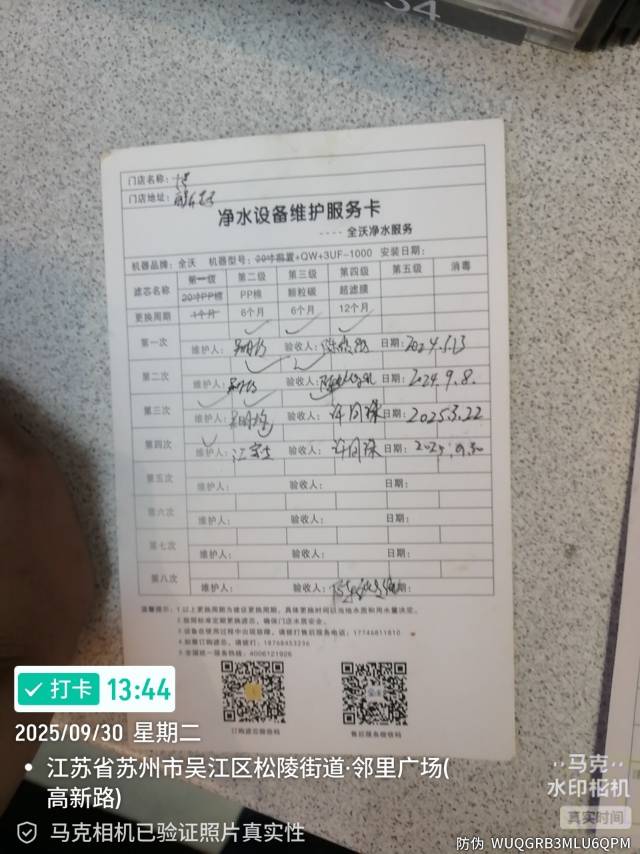 34
门店名称：
门店地址：
净水设备维护服务卡
---- 全沃净水服务
机器品牌：全沃 机器型号：20寸前置+QW+3UF-1000 安装日期：
滤芯名称 第一级 第二级 第三级 第四级 第五级 消毒
20寸PP棉 PP棉 颗粒碳 超滤膜
更换周期 1个月 6个月 6个月 12个月
第一次 维护人： 验收人： 日期：2024.5.23
第二次 维护人： 验收人： 日期：2024.9.8.
第三次 维护人： 验收人：许同禄 日期：2025.3.22
第四次 维护人：江宝生 验收人：许同禄 日期：2025.9.30
第五次 维护人： 验收人： 日期：
第六次 维护人： 验收人： 日期：
第七次 维护人： 验收人： 日期：
第八次 维护人： 验收人： 日期：
温馨提示：1.以上更换周期为建议更换周期，具体更换时间以当地水质和用水量决定。
2.按照标准定期更换滤芯，确保门店水质安全。
3.设备在使用过程中出现故障，请拨打售后服务电话：17746811810
4.如需订购滤芯，请拨打：18768453236
5.全国统一服务热线：4006121926
订购滤芯微信码
售后服务微信码
打卡 13:44
2025/09/30 星期二
江苏省苏州市吴江区松陵街道·邻里广场(
高新路)
马克相机已验证照片真实性
马克
水印相机
真实时间
防伪 WUQGRB3MLU6QPM